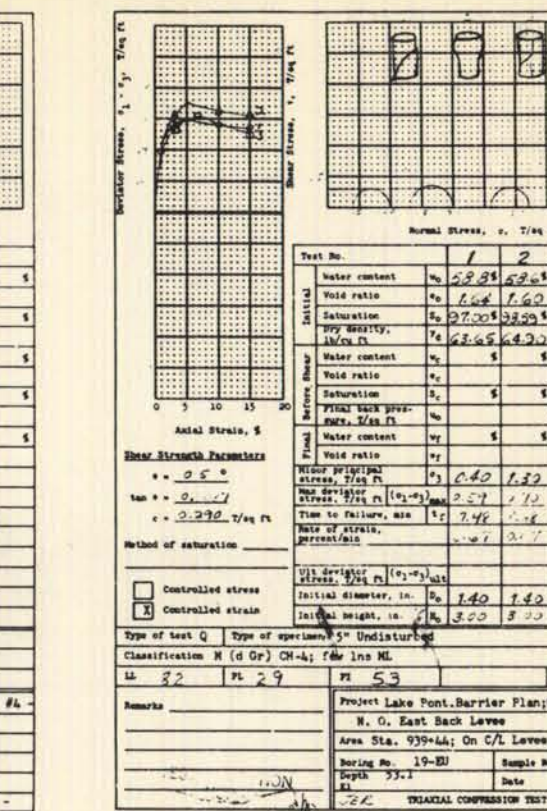 Deviator Stress, σ1 - σ3, T/sq ft
Shear Stress, τ, T/sq ft
0 5 10 15 20
Axial Strain, %
Normal Stress, σ, T/sq
Shear Strength Parameters
ø = 0.5 °
tan ø =
c = 0.290 T/sq ft
Method of saturation
Controlled stress
X Controlled strain
Test No. 1 2
Initial
Water content w0 58.8% 58.6%
Void ratio e0 1.64 1.60
Saturation S0 97.00% 98.59%
Dry density, lb/cu ft γd 63.65 64.90
Before Shear
Water content wc % %
Void ratio ec
Saturation Sc % %
Final back pressure, T/sq ft u0
Final
Water content wf % %
Void ratio ef
Minor principal stress, T/sq ft σ3 0.40 1.30
Max deviator stress, T/sq ft (σ1-σ3)max 0.59
Time to failure, min tf 7.48
Rate of strain, percent/min
Ult deviator stress, T/sq ft (σ1-σ3)ult
Initial diameter, in. D0 1.40 1.40
Initial height, in. H0 3.00 3.00
Type of test Q Type of specimen 5" Undisturbed
Classification M (d Gr) CH-4; few lns ML
LL 82 PL 29 PI 53
#4 -
Remarks
Project Lake Pont.Barrier Plan;
N. O. East Back Levee
Area Sta. 939+44; On C/L Levee
Boring No. 19-EU Sample
Depth 53.1 Date
El
TRIAXIAL COMPRESSION TEST